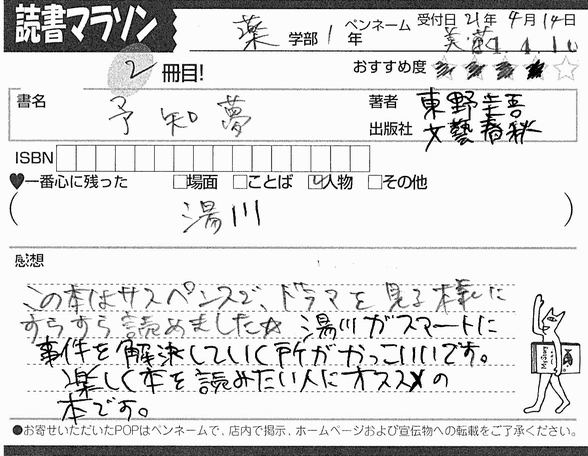 読書マラソン
薬 学部 1 年 ペンネーム 受付日 21年 4月 14日
2 冊目! おすすめ度 ★★★★☆
書名 予知夢 著者 東野圭吾
出版社 文藝春秋
ISBN
♥一番心に残った □場面 □ことば ☑人物 □その他
( 湯川 )
感想
この本はサスペンスで、ドラマを見る様に
すらすら読めました☆ 湯川がスマートに
事件を解決していく所がかっこいいです。
楽しく本を読みたい人にオススメの
本です。
●お寄せいただいたPOPはペンネームで、店内で掲示、ホームページおよび宣伝物への転載をご了承ください。